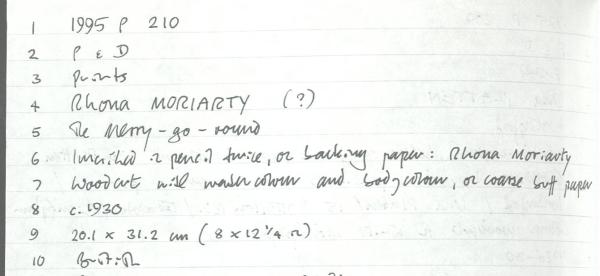 1 1995 P 210
2 P & D
3 Prints
4 Rhona MORIARTY (?)
5 The Merry-go-round
6 Inscribed in pencil twice, on backing paper: Rhona Moriarty
7 Woodcut with watercolour and bodycolour, on coarse buff paper
8 c. 1930
9 20.1 x 31.2 cm (8 x 12 1/4 in)
10 British